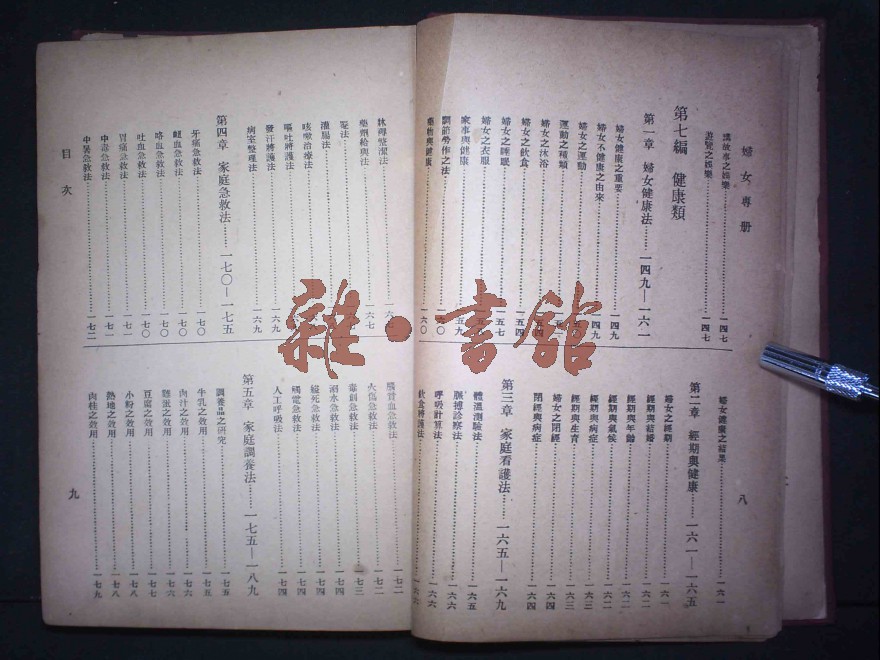 婦女專册
講故事之娛樂……一四七
遊覽之娛樂……一四七
第七編 健康類
第一章 婦女健康法……一四九—一六一
婦女健康之重要……一四九
婦女不健康之由來……一四九
婦女之運動
運動之種類
婦女之沐浴
婦女之飲食……一五四
婦女之睡眠……一五七
婦女之衣服
家事與健康
調節勞作之法……一六〇
藥物與健康……一六〇
婦女健康之結果……一六一
第二章 經期與健康……一六一—一六五
婦女之經期……一六一
經期與結婚……一六二
經期與年齡……一六二
經期與氣候……一六二
經期與病症……一六三
經期與生育……一六三
婦女之閉經……一六四
閉經與病症……一六四
第三章 家庭看護法……一六五—一六九
體溫測驗法……一六五
脈搏診察法……一六六
呼吸計算法……一六六
飲食將護法……一六六
八
牀褥整潔法
藥劑給與法……一六七
罨法
灌腸法
咳嗽治療法
嘔吐將護法……一六九
發汗將護法……一六九
病室整理法……一六九
第四章 家庭急救法……一七〇—一七五
牙痛急救法……一七〇
衄血急救法……一七〇
咯血急救法……一七〇
吐血急救法……一七〇
胃痛急救法……一七一
中毒急救法……一七一
中暑急救法……一七二
目次
腦貧血急救法……一七二
火傷急救法……一七二
毒創急救法……一七三
溺水急救法……一七四
縊死急救法……一七四
觸電急救法……一七四
人工呼吸法……一七四
第五章 家庭調養法……一七五—一八九
調養品之研究……一七五
牛乳之效用……一七五
肉汁之效用……一七六
雞蛋之效用……一七六
豆腐之效用……一七七
小粉之效用……一七八
熟地之效用……一七八
肉桂之效用……一七九
九
雜·書館